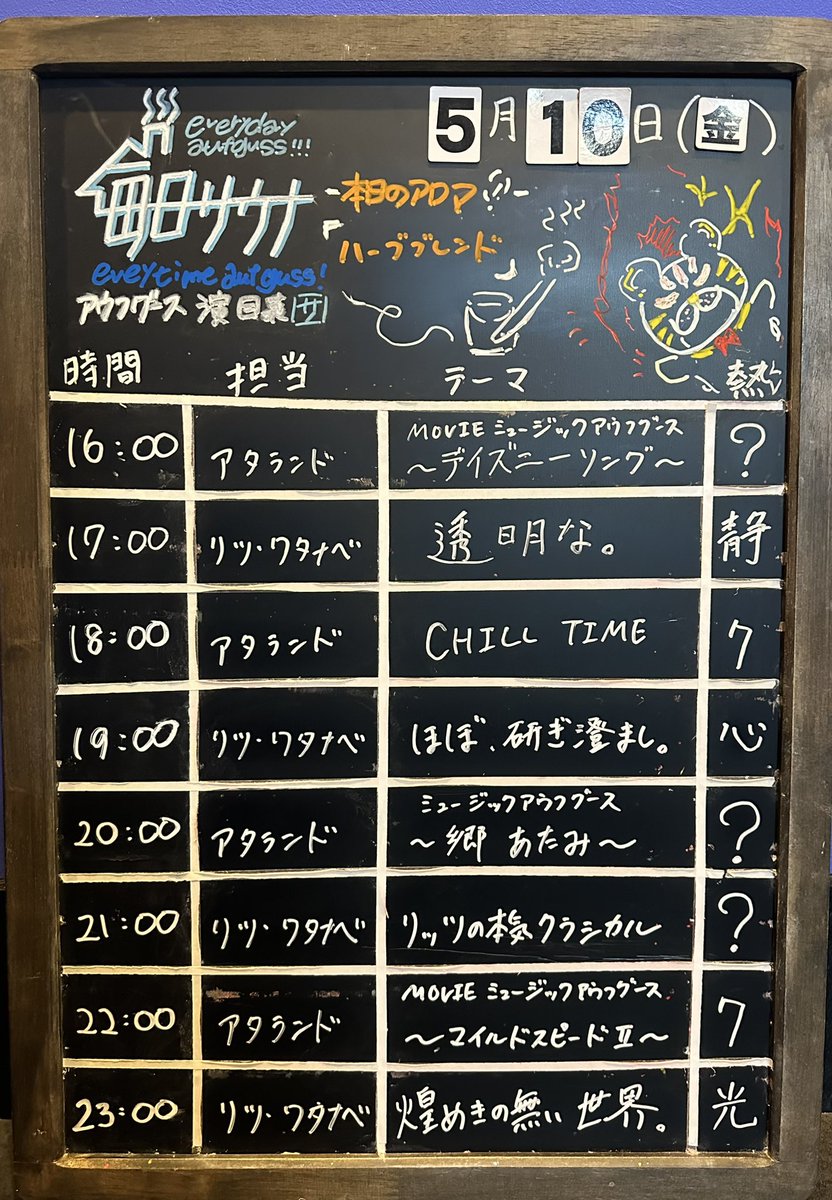 everyday
aufguss!!!
毎日サウナ
5月10日(金)
本日のアロマ
ハーブブレンド
everytime aufguss!
アウフグース 演目表
時間 担当 テーマ 熱
16:00 アタランド MOVIE ミュージックアウフグース ?
〜デイズニーソング〜
17:00 リツ・ワタナベ 透明な。 静
18:00 アタランド CHILL TIME 7
19:00 リツ・ワタナベ ほぼ、研ぎ澄まし。 心
20:00 アタランド ミュージックアウフグース ?
〜郷 あたみ〜
21:00 リツ・ワタナベ リッツの本気クラシカル ?
22:00 アタランド MOVIE ミュージックアウフグース 7
〜マイルドスピードⅡ〜
23:00 リツ・ワタナベ 煌めきの無い世界。 光